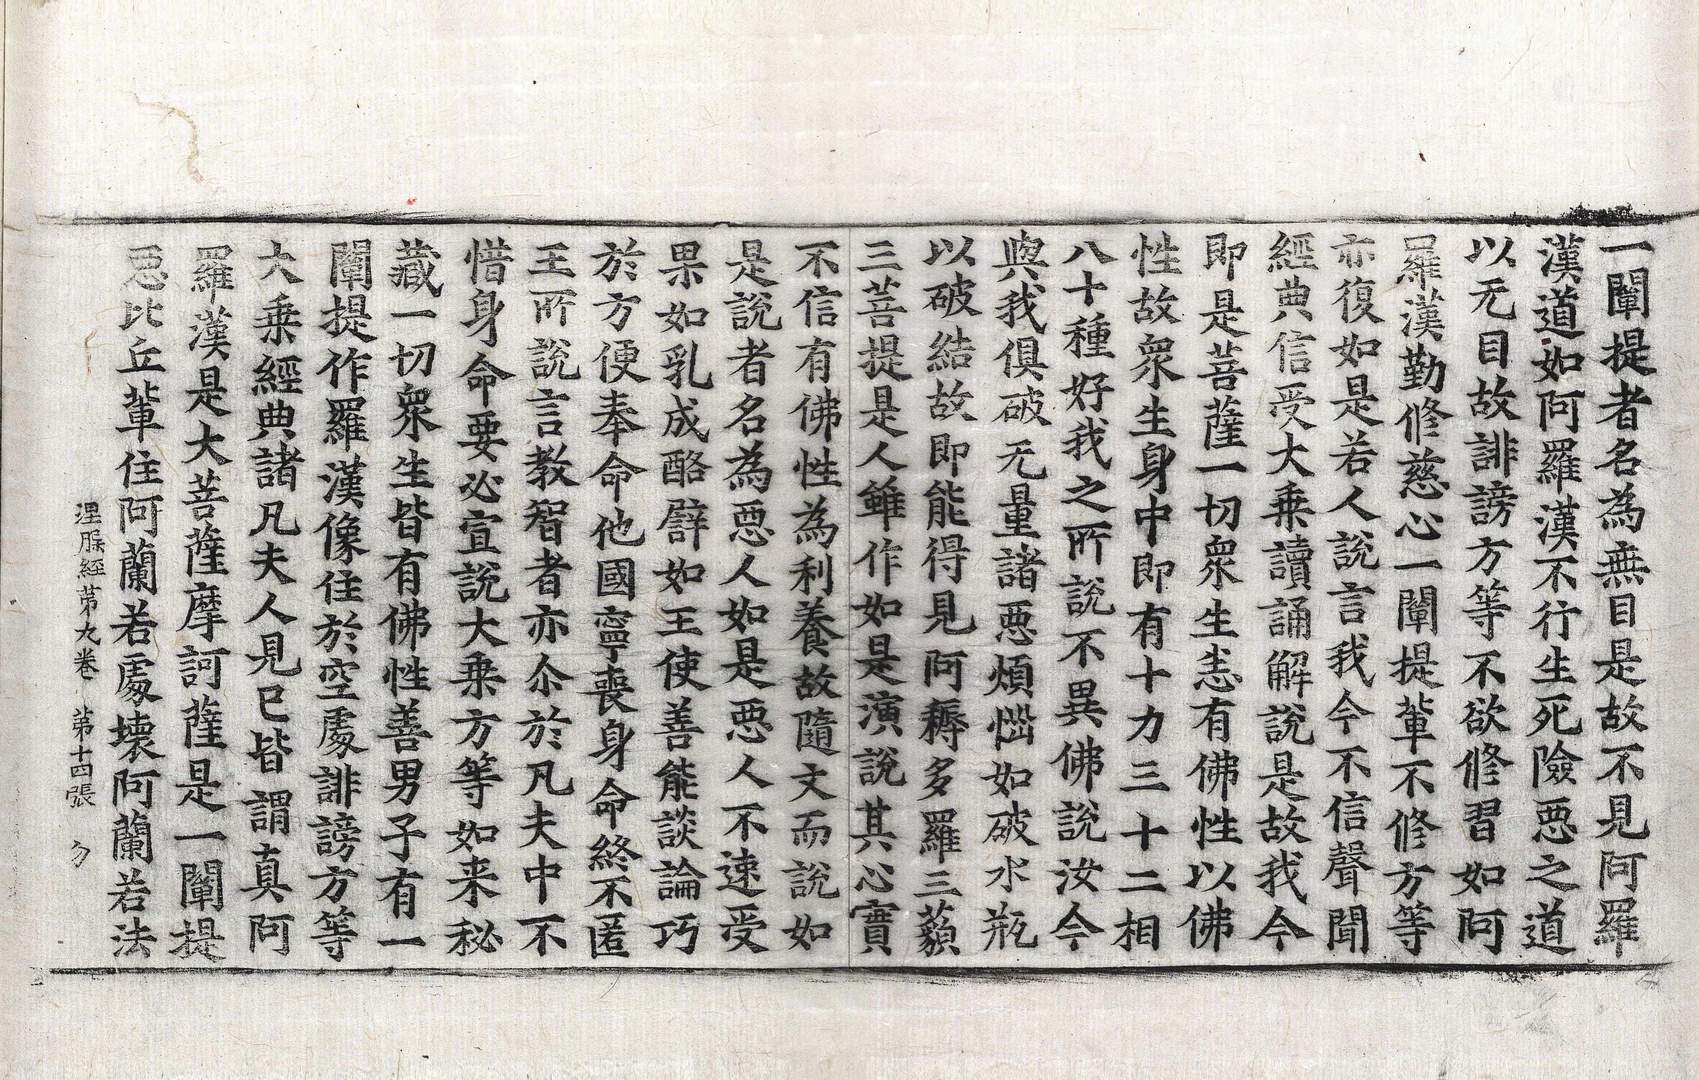 一闡提者名為無目是故不見阿羅
漢道如阿羅漢不行生死險惡之道
以无目故誹謗方等不欲修習如阿
羅漢勤修慈心一闡提輩不修方等
亦復如是若人說言我今不信聲聞
經典信受大乗讀誦解說是故我今
即是菩薩一切衆生悉有佛性以佛
性故衆生身中即有十力三十二相
八十種好我之所說不異佛說汝今
與我俱破无量諸惡煩惱如破水瓶
以破結故即能得見阿耨多羅三藐
三菩提是人雖作如是演說其心實
不信有佛性為利養故隨文而說如
是說者名為惡人如是惡人不速受
果如乳成酪譬如王使善能談論巧
於方便奉命他國寧喪身命終不匿
王所說言教智者亦尒於凡夫中不
惜身命要必宣說大乗方等如来秘
藏一切衆生皆有佛性善男子有一
闡提作羅漢像住於空處誹謗方等
大乗經典諸凡夫人見已皆謂真阿
羅漢是大菩薩摩訶薩是一闡提
惡比丘輩住阿蘭若處壞阿蘭若法
涅槃經苐九卷 苐十四張 勿